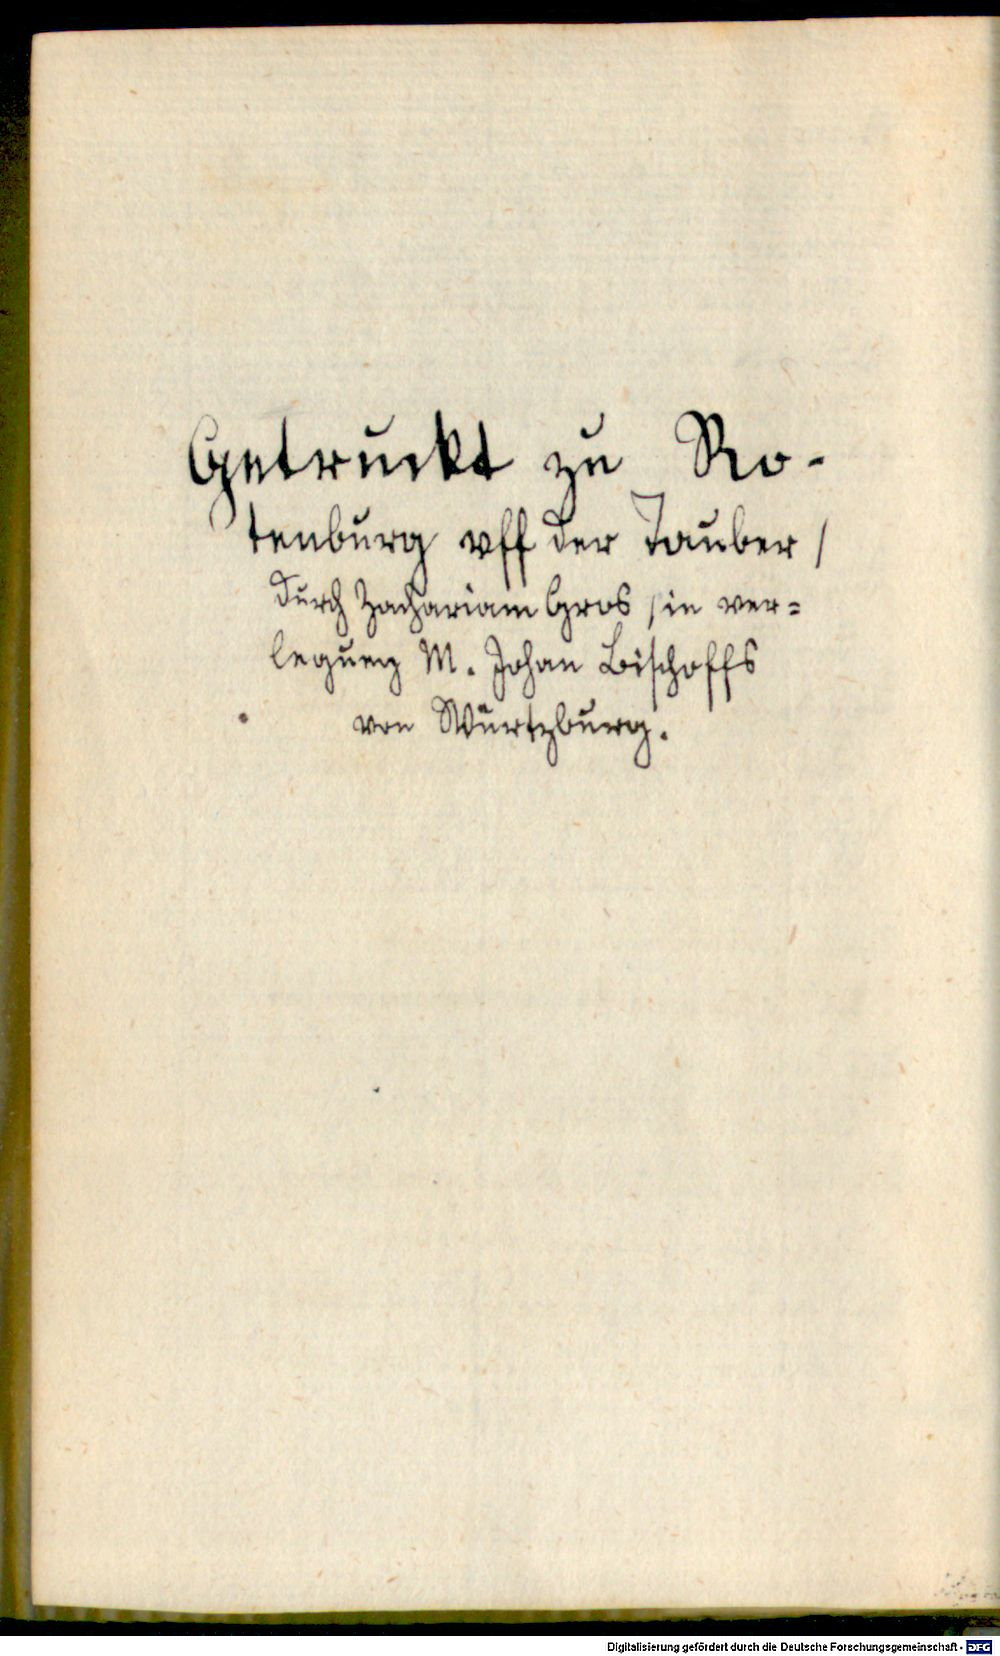 Getruckt zu Ro-
tenburg vff der Tauber /
durch Zachariam Gros / in ver=
legung M. Johan Bischoffs
von Würtzburg.
Digitalisierung gefördert durch die Deutsche Forschungsgemeinschaft - DFG